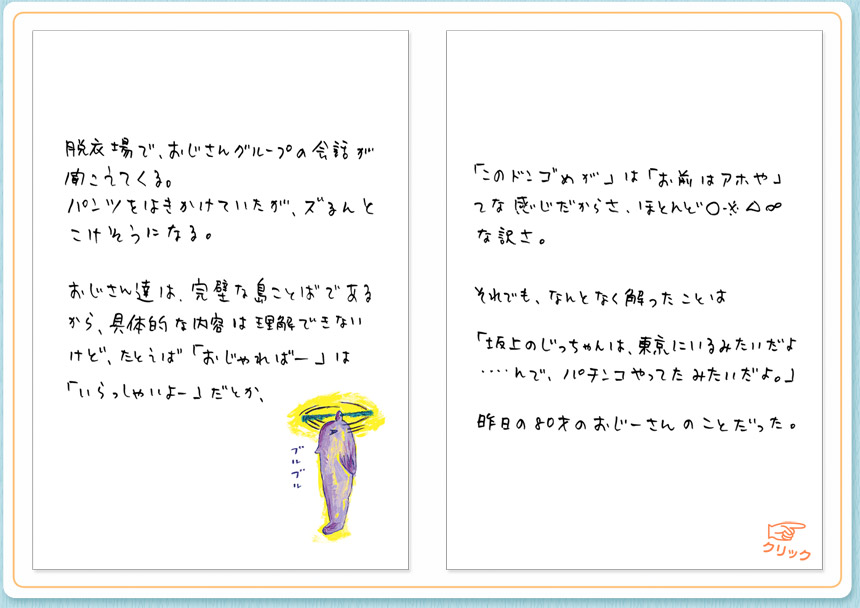 脱衣場で、おじさんグループの会話が
聞こえてくる。
パンツをはきかけていたが、ズるんと
こけそうになる。
おじさん達は、完璧な島ことばである
から、具体的な内容は理解できない
けど、たとえば「おじゃればー」は
「いらっしゃいよー」だとか、
ブルブル
「このドンゴめが」は「お前はアホや」
てな感じだからさ、ほとんど〇※△∞
な訳さ。
それでも、なんとなく解ったことは
「坂上のじっちゃんは、東京にいるみたいだよ
‥‥んで、パチンコやってたみたいだよ。」
昨日の80才のおじーさんのことだった。
クリック